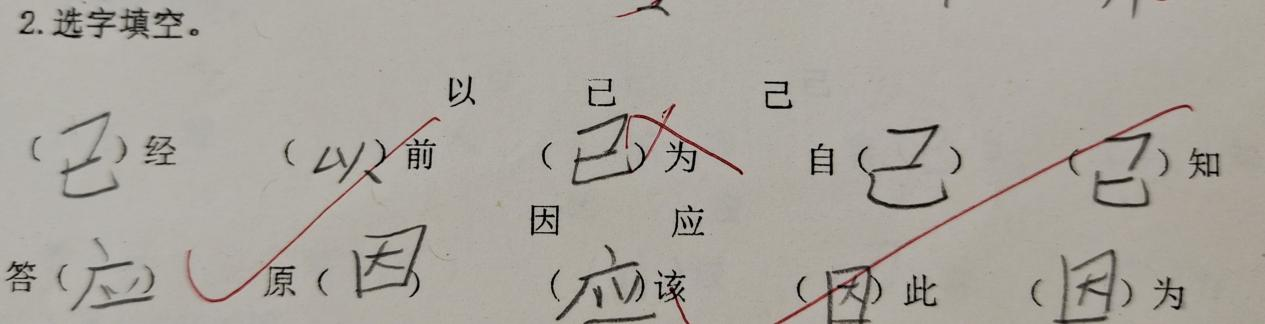 2.选字填空。
以 已 己
（已）经 （以）前 （已）为 自（己） （己）知
因 应
答（应） 原（因） （应）该 （因）此 （因）为